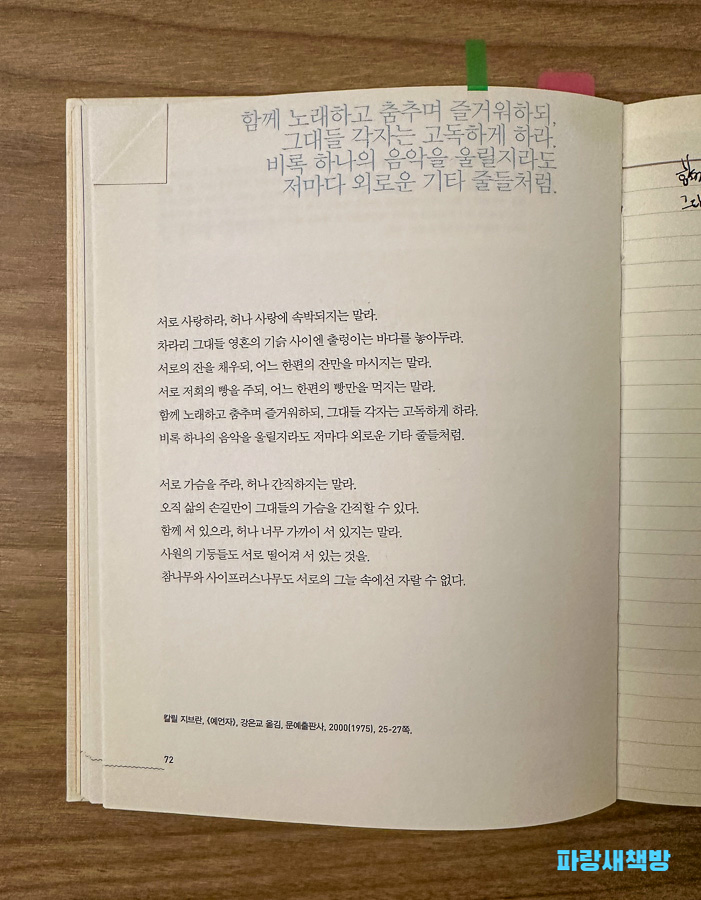 함께 노래하고 춤추며 즐거워하되,
그대들 각자는 고독하게 하라.
비록 하나의 음악을 울릴지라도
저마다 외로운 기타 줄들처럼.
서로 사랑하라, 허나 사랑에 속박되지는 말라.
차라리 그대들 영혼의 기슭 사이엔 출렁이는 바다를 놓아두라.
서로의 잔을 채우되, 어느 한편의 잔만을 마시지는 말라.
서로 저희의 빵을 주되, 어느 한편의 빵만을 먹지는 말라.
함께 노래하고 춤추며 즐거워하되, 그대들 각자는 고독하게 하라.
비록 하나의 음악을 울릴지라도 저마다 외로운 기타 줄들처럼.
서로 가슴을 주라, 허나 간직하지는 말라.
오직 삶의 손길만이 그대들의 가슴을 간직할 수 있다.
함께 서 있으라, 허나 너무 가까이 서 있지는 말라.
사원의 기둥들도 서로 떨어져 서 있는 것을.
참나무와 사이프러스나무도 서로의 그늘 속에선 자랄 수 없다.
칼릴 지브란, 《예언자》, 강은교 옮김, 문예출판사, 2000(1975), 25-27쪽.
72
파랑새책방